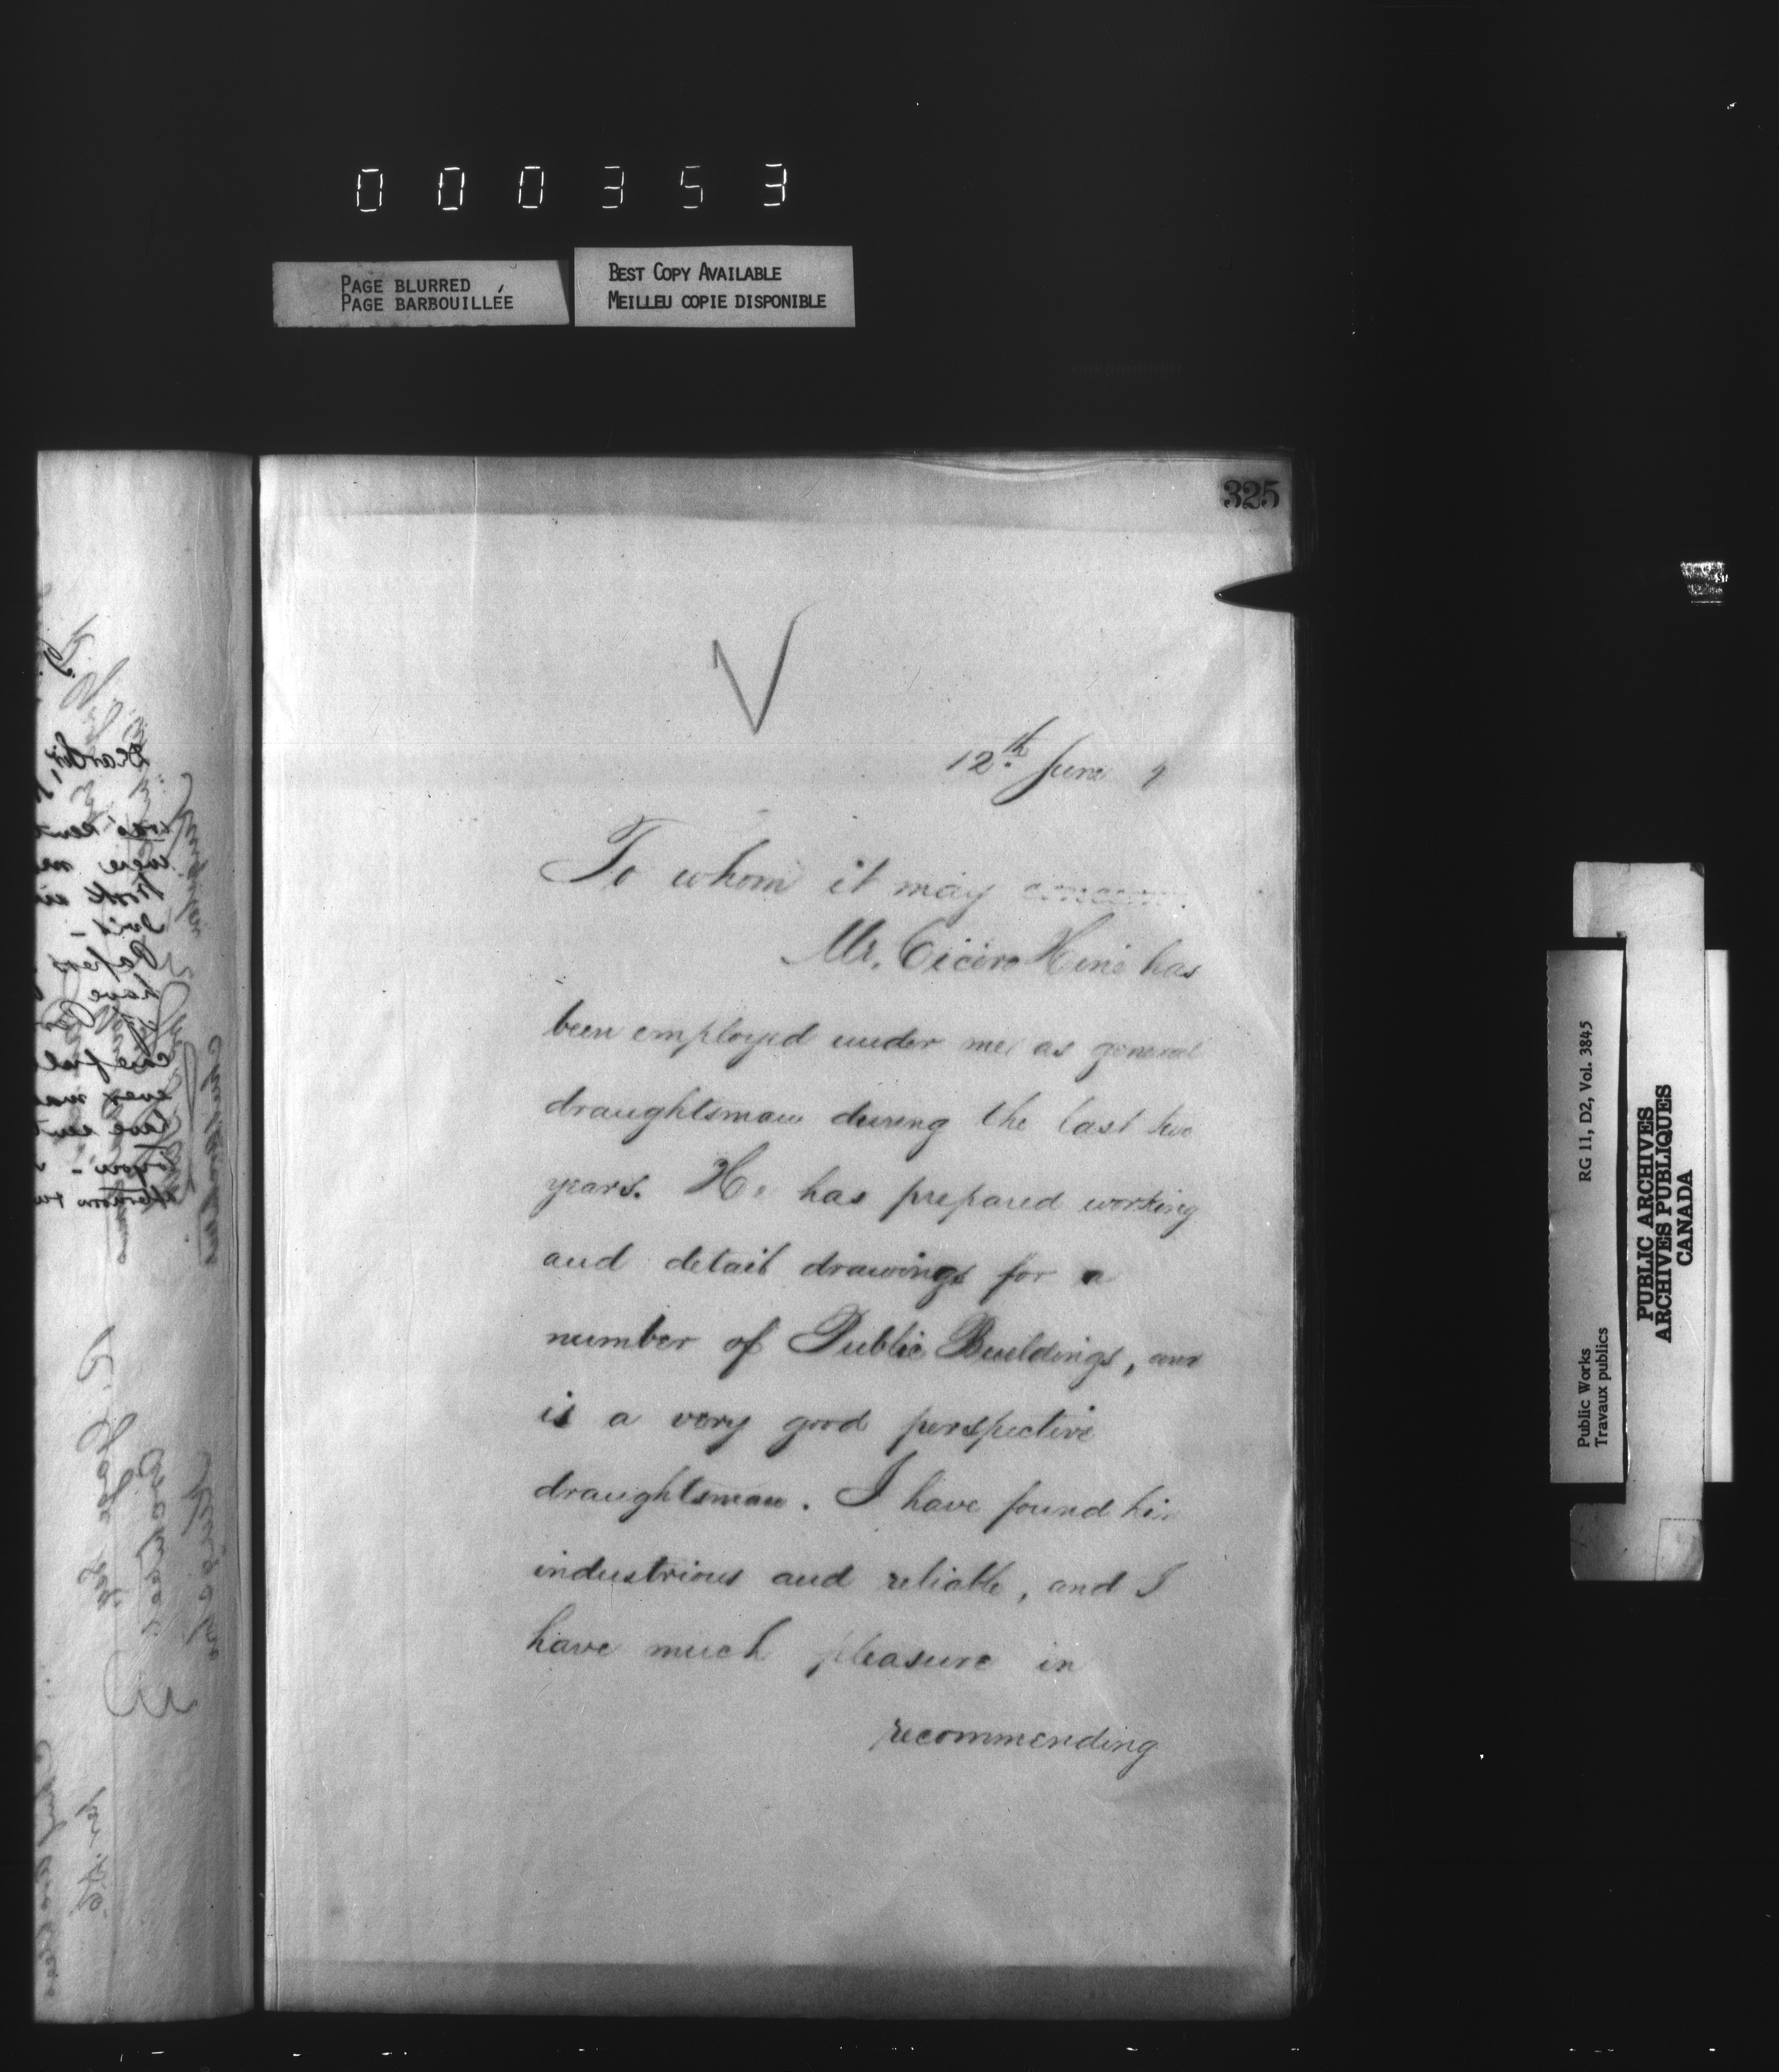 000353
PAGE BLURRED
PAGE BARBOUILLÉE
BEST COPY AVAILABLE
MEILLEU COPIE DISPONIBLE
325
12th June 9
To whom it may concern.
Mr. Cicero Hine has
been employed under me as general
draughtsman during the last two
years. He has prepared working
and detail drawings for a
number of Public Buildings, and
is a very good perspective
draughtsman. I have found him
industrious and reliable, and I
have much pleasure in
recommending
Public Works
Travaux publics
RG 11, D2, Vol. 3845
PUBLIC ARCHIVES
ARCHIVES PUBLIQUES
CANADA